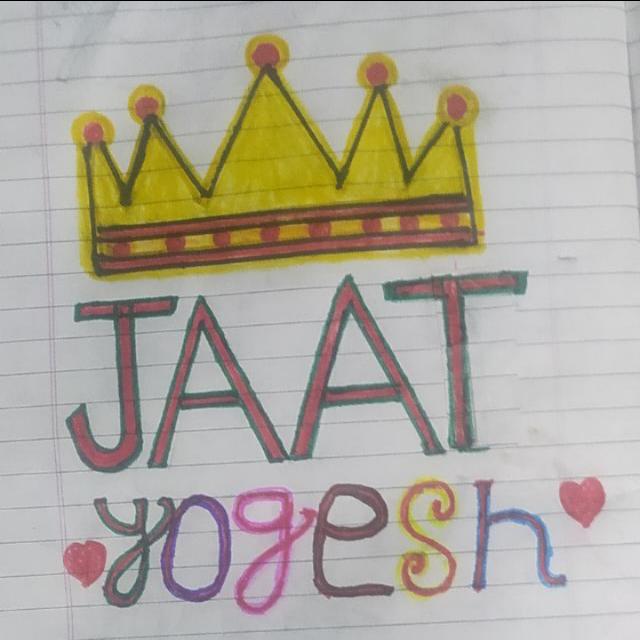 JAAT
yogesh